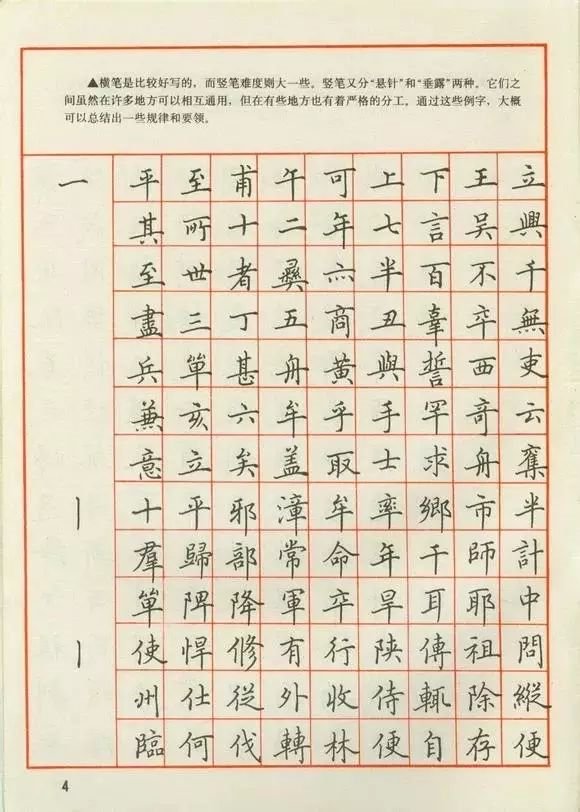 ▲横笔是比较好写的，而竖笔难度则大一些。竖笔又分“悬针”和“垂露”两种，它们之
间虽然在许多地方可以相互通用，但在有些地方也有着严格的分工。通过这些例字，大概
可以总结出一些规律和要领。
一 平 至 甫 午 可 上 下 王 立
其 所 十 二 年 七 言 吴 興
至 世 者 彝 六 半 百 不 千
盡 三 丁 五 商 丑 辜 卒 無
兵 單 甚 舟 黄 與 誓 西 吏
兼 亥 六 牟 乎 手 罕 奇 云
意 立 矣 盖 取 士 求 舟 奪
丨 十 平 邪 漳 牟 率 鄉 市 半
羣 歸 部 常 命 年 干 師 計
單 陴 降 軍 卒 旱 耳 耶 中
丨 使 悍 修 有 行 陕 傳 祖 問
州 仕 從 外 收 侍 輒 除 縱
臨 何 伐 轉 林 便 自 存 便
4